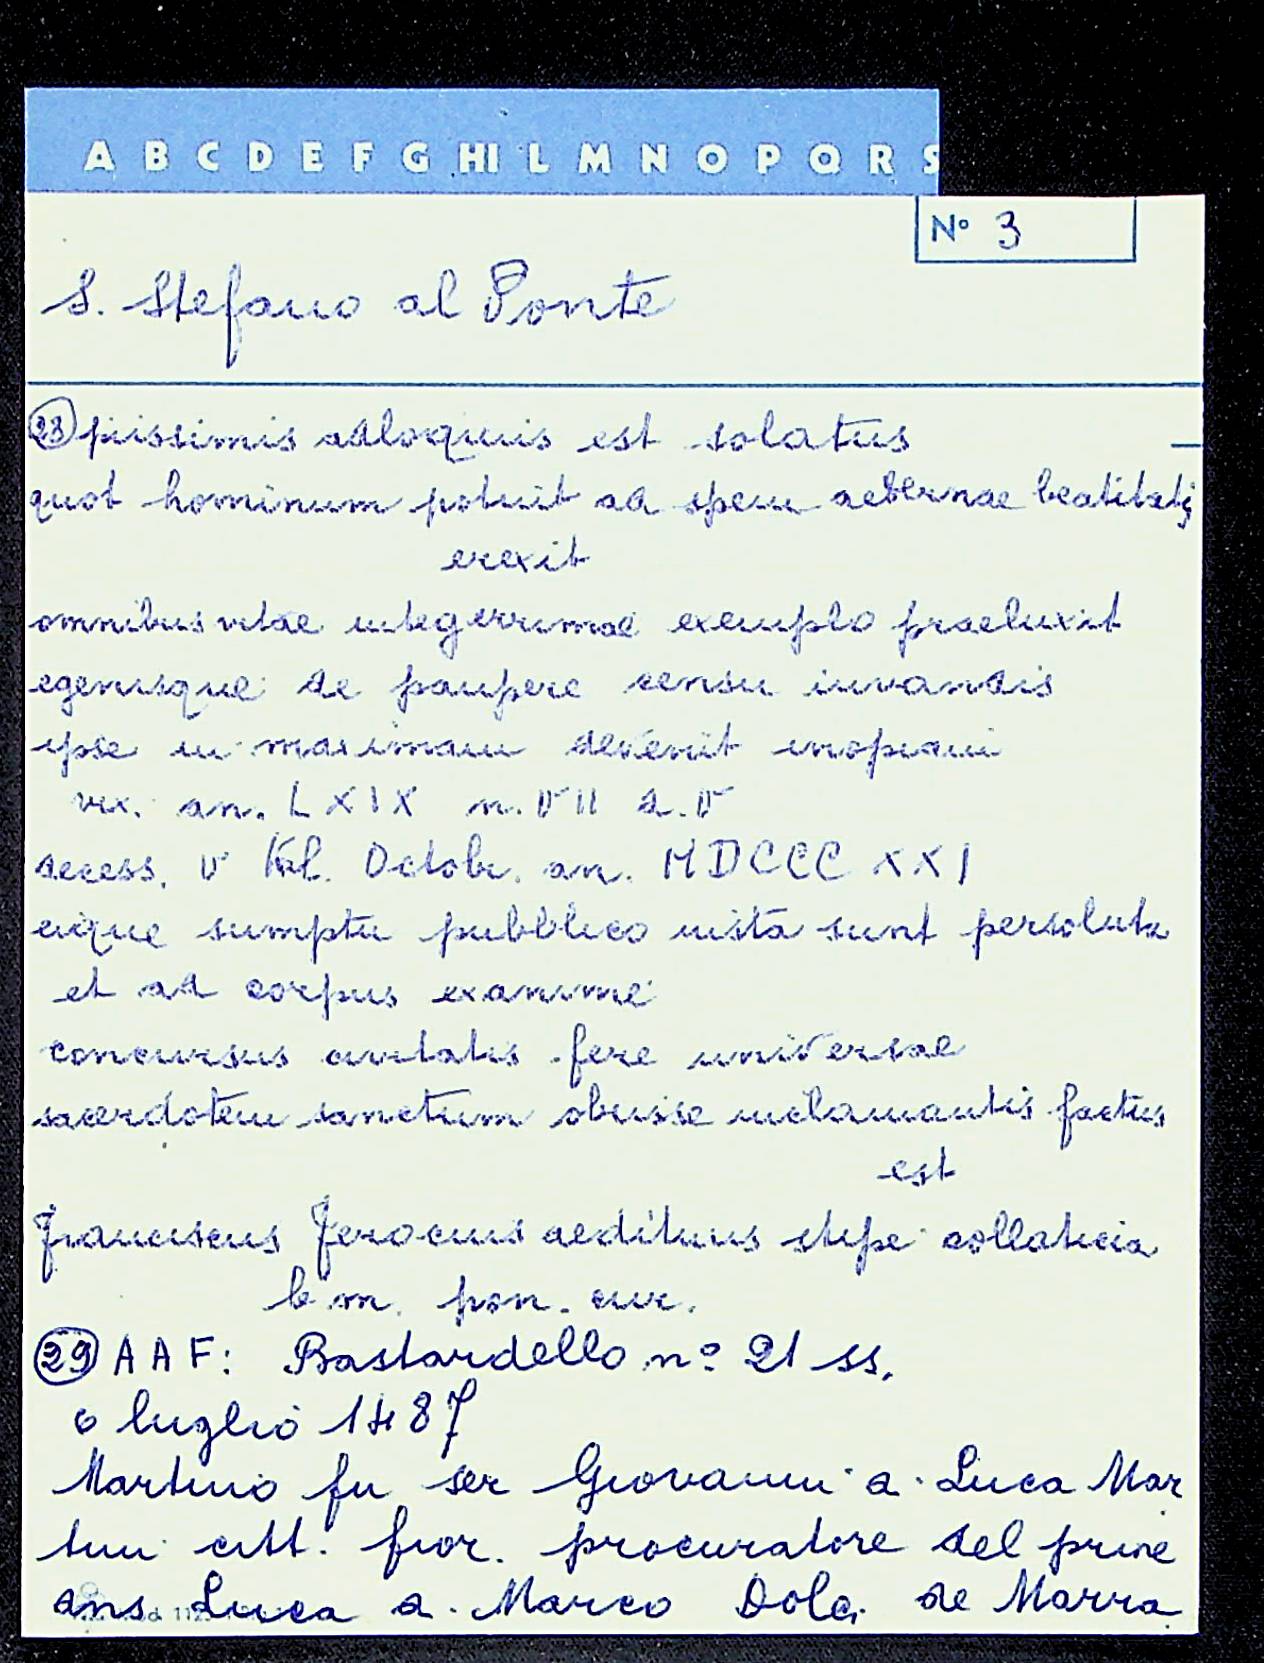 A B C D E F G HI L M N O P Q R S
N° 3
S. Stefano al Ponte
28 piissimis adloquiis est solatus
quot hominum potuit ad spem aeternae beatitatis
erexit
omnibus vitae integerrimae exemplo praeluxit
egenisque de paupere censu iuvandis
ipse in maximam devenit inopiam
vix. an. LXIX m. VII d. V
decess. V Kal. Octobr. an. MDCCCXXI
eique sumptu pubblico iusta sunt persoluta
et ad corpus exanime
concursus civitatis fere universae
sacerdotem sanctum obiisse inclamantis factus
est
Franciscus Ferocius aedituus stipe collaticia
b. m. pon. cur.
29 AAF: Bastardello n° 21 ss.
6 luglio 1487
Martino fu ser Giovanni d. Luca Mar
tini citt. fior. procuratore del prove
ans Luca d. Marco Dolci de Marra